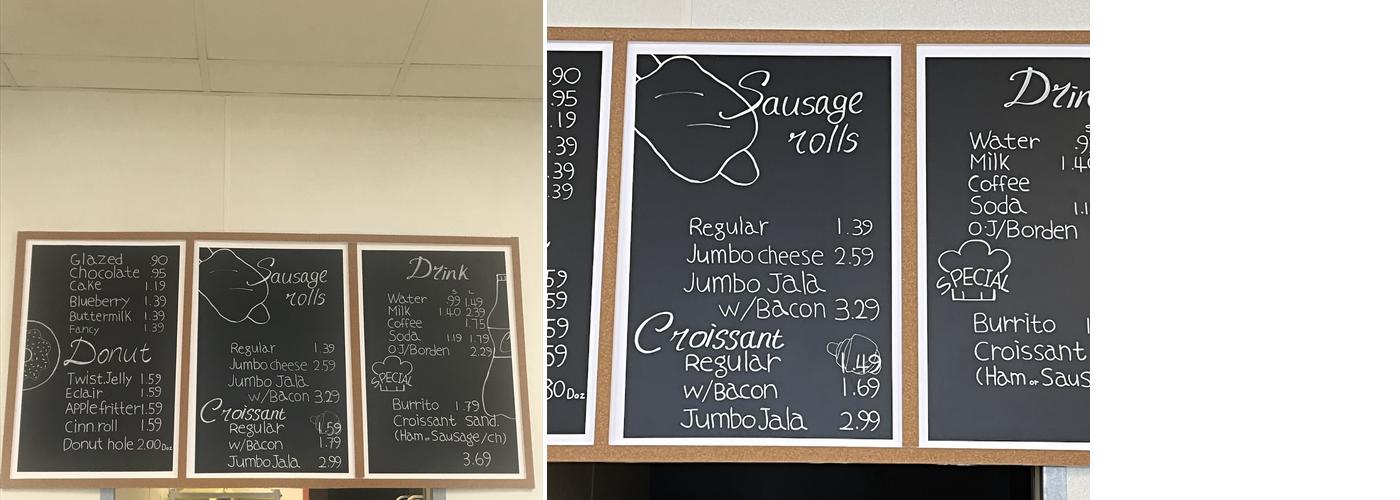 Glazed .90
Chocolate .95
Cake 1.19
Blueberry 1.39
Buttermilk 1.39
Fancy 1.39
Donut
Twist.Jelly 1.59
Eclair 1.59
APPle fritter 1.59
Cinn.roll 1.59
Donut hole 2.00 Doz
Sausage
rolls
Regular 1.39
Jumbo cheese 2.59
Jumbo Jala
w/Bacon 3.29
Croissant
Regular 1.59
w/Bacon 1.79
Jumbo Jala 2.99
Drink
S L
Water .99 1.49
Milk 1.40 2.39
Coffee 1.75
Soda 1.19 1.79
O.J/Borden 2.29
SPECIAL
Burrito 1.79
Croissant Sand.
(Ham or Sausage/ch)
3.69
.90
.95
.19
.39
.39
.39
59
59
59
59
80 Doz
Sausage
rolls
Regular 1.39
Jumbo cheese 2.59
Jumbo Jala
w/Bacon 3.29
Croissant
Regular 1.49
w/Bacon 1.69
Jumbo Jala 2.99
Drin
Water .9
Milk 1.40
Coffee
Soda 1.1
O.J/Borden
SPECIAL
Burrito 1
Croissant
(Ham or Saus